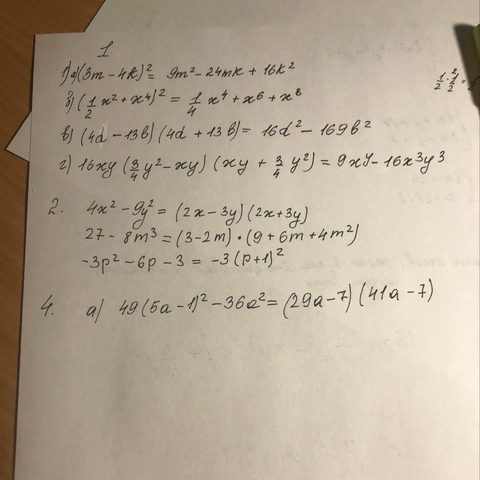 1
1) а) (3m - 4k)² = 9m² - 24mk + 16k²
б) (1/2 x² + x⁴)² = 1/4 x⁴ + x⁶ + x⁸
в) (4d - 13b)(4d + 13b) = 16d² - 169b²
г) 16xy (3/4 y² - xy) (xy + 3/4 y²) = 9xy⁵ - 16x³y³
2. 4x² - 9y² = (2x - 3y)(2x + 3y)
27 - 8m³ = (3 - 2m) · (9 + 6m + 4m²)
-3p² - 6p - 3 = -3(p+1)²
4. а) 49(5a - 1)² - 36a² = (29a - 7)(41a - 7)